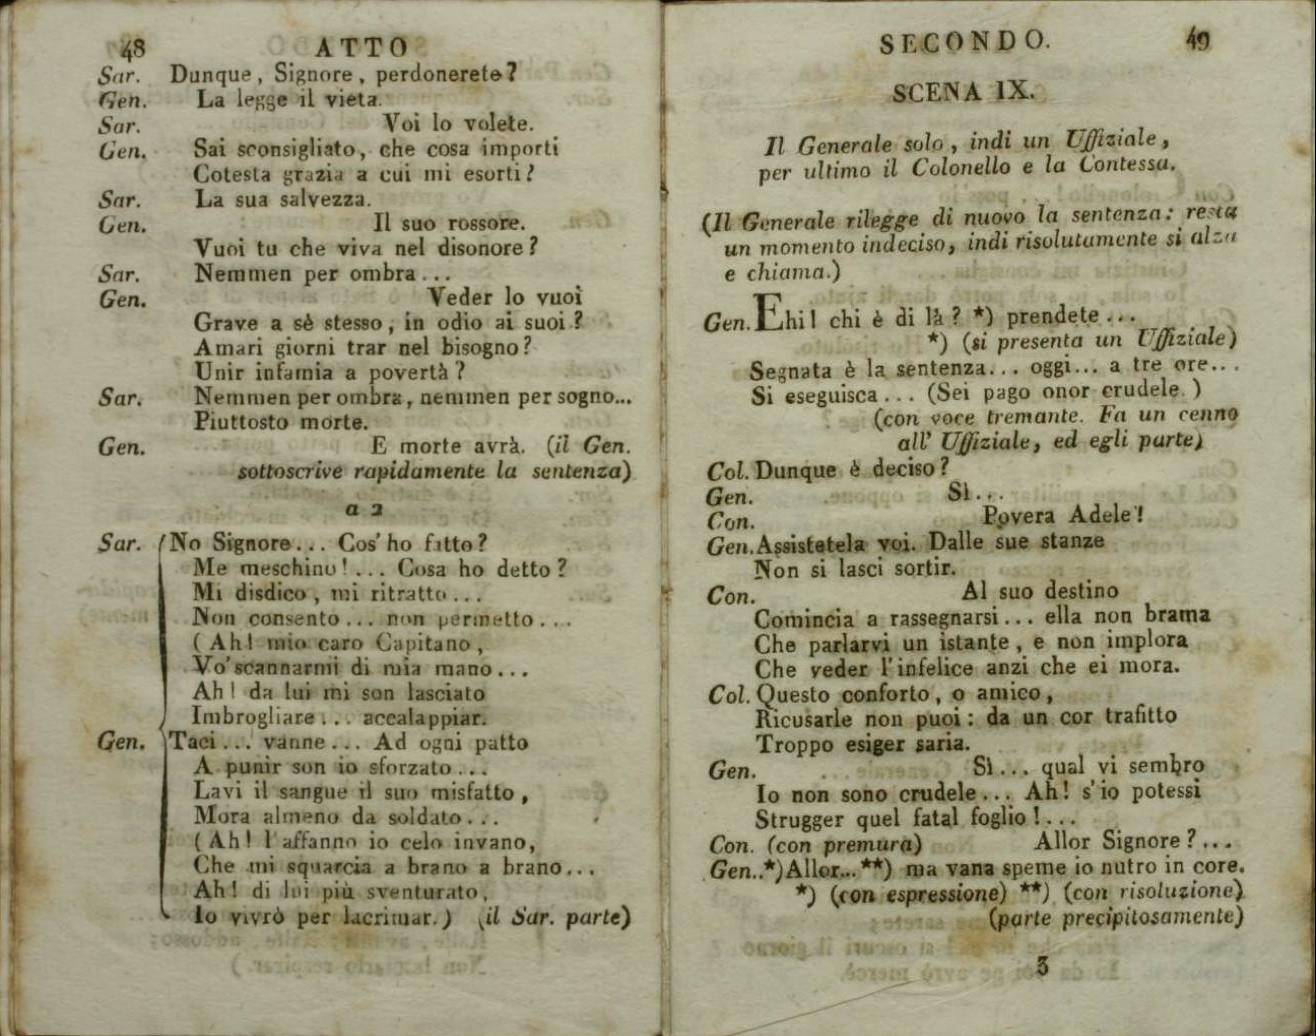 48 ATTO
Sar. Dunque, Signore, perdonerete?
Gen. La legge il vieta.
Sar. Voi lo volete.
Gen. Sai sconsigliato, che cosa importi
Cotesta grazia a cui mi esorti?
Sar. La sua salvezza.
Gen. Il suo rossore.
Vuoi tu che viva nel disonore?
Sar. Nemmen per ombra...
Gen. Veder lo vuoi
Grave a sè stesso, in odio ai suoi?
Amari giorni trar nel bisogno?
Unir infamia a povertà?
Sar. Nemmen per ombra, nemmen per sogno...
Piuttosto morte.
Gen. E morte avrà. (il Gen.
sottoscrive rapidamente la sentenza)
a 2
Sar. No Signore... Cos' ho fatto?
Me meschino!... Cosa ho detto?
Mi disdico, mi ritratto...
Non consento... non permetto...
(Ah! mio caro Capitano,
Vo' scannarmi di mia mano...
Ah! da lui mi son lasciato
Imbrogliare... accalappiar.
Gen. Taci... vanne... Ad ogni patto
A punir son io sforzato...
Lavi il sangue il suo misfatto,
Mora almeno da soldato...
(Ah! l'affanno io celo invano,
Che mi squarcia a brano a brano...
Ah! di lui più sventurato,
Io vivrò per lacrimar.) (il Sar. parte)
SECONDO. 49
SCENA IX.
Il Generale solo, indi un Uffiziale,
per ultimo il Colonello e la Contessa.
(Il Generale rilegge di nuovo la sentenza: resta
un momento indeciso, indi risolutamente si alza
e chiama.)
Gen. Ehi! chi è di là? *) prendete...
*) (si presenta un Uffiziale)
Segnata è la sentenza... oggi... a tre ore...
Si eseguisca... (Sei pago onor crudele.)
(con voce tremante. Fa un cenno
all' Uffiziale, ed egli parte)
Col. Dunque è deciso?
Gen. Sì...
Con. Povera Adele!
Gen. Assistetela voi. Dalle sue stanze
Non si lasci sortir.
Con. Al suo destino
Comincia a rassegnarsi... ella non brama
Che parlarvi un istante, e non implora
Che veder l'infelice anzi che ei mora.
Col. Questo conforto, o amico,
Ricusarle non puoi: da un cor trafitto
Troppo esiger saria.
Gen. Sì... qual vi sembro
Io non sono crudele... Ah! s'io potessi
Strugger quel fatal foglio!...
Con. (con premura) Allor Signore?...
Gen..*) Allor... **) ma vana speme io nutro in core.
*) (con espressione) **) (con risoluzione)
(parte precipitosamente)
3